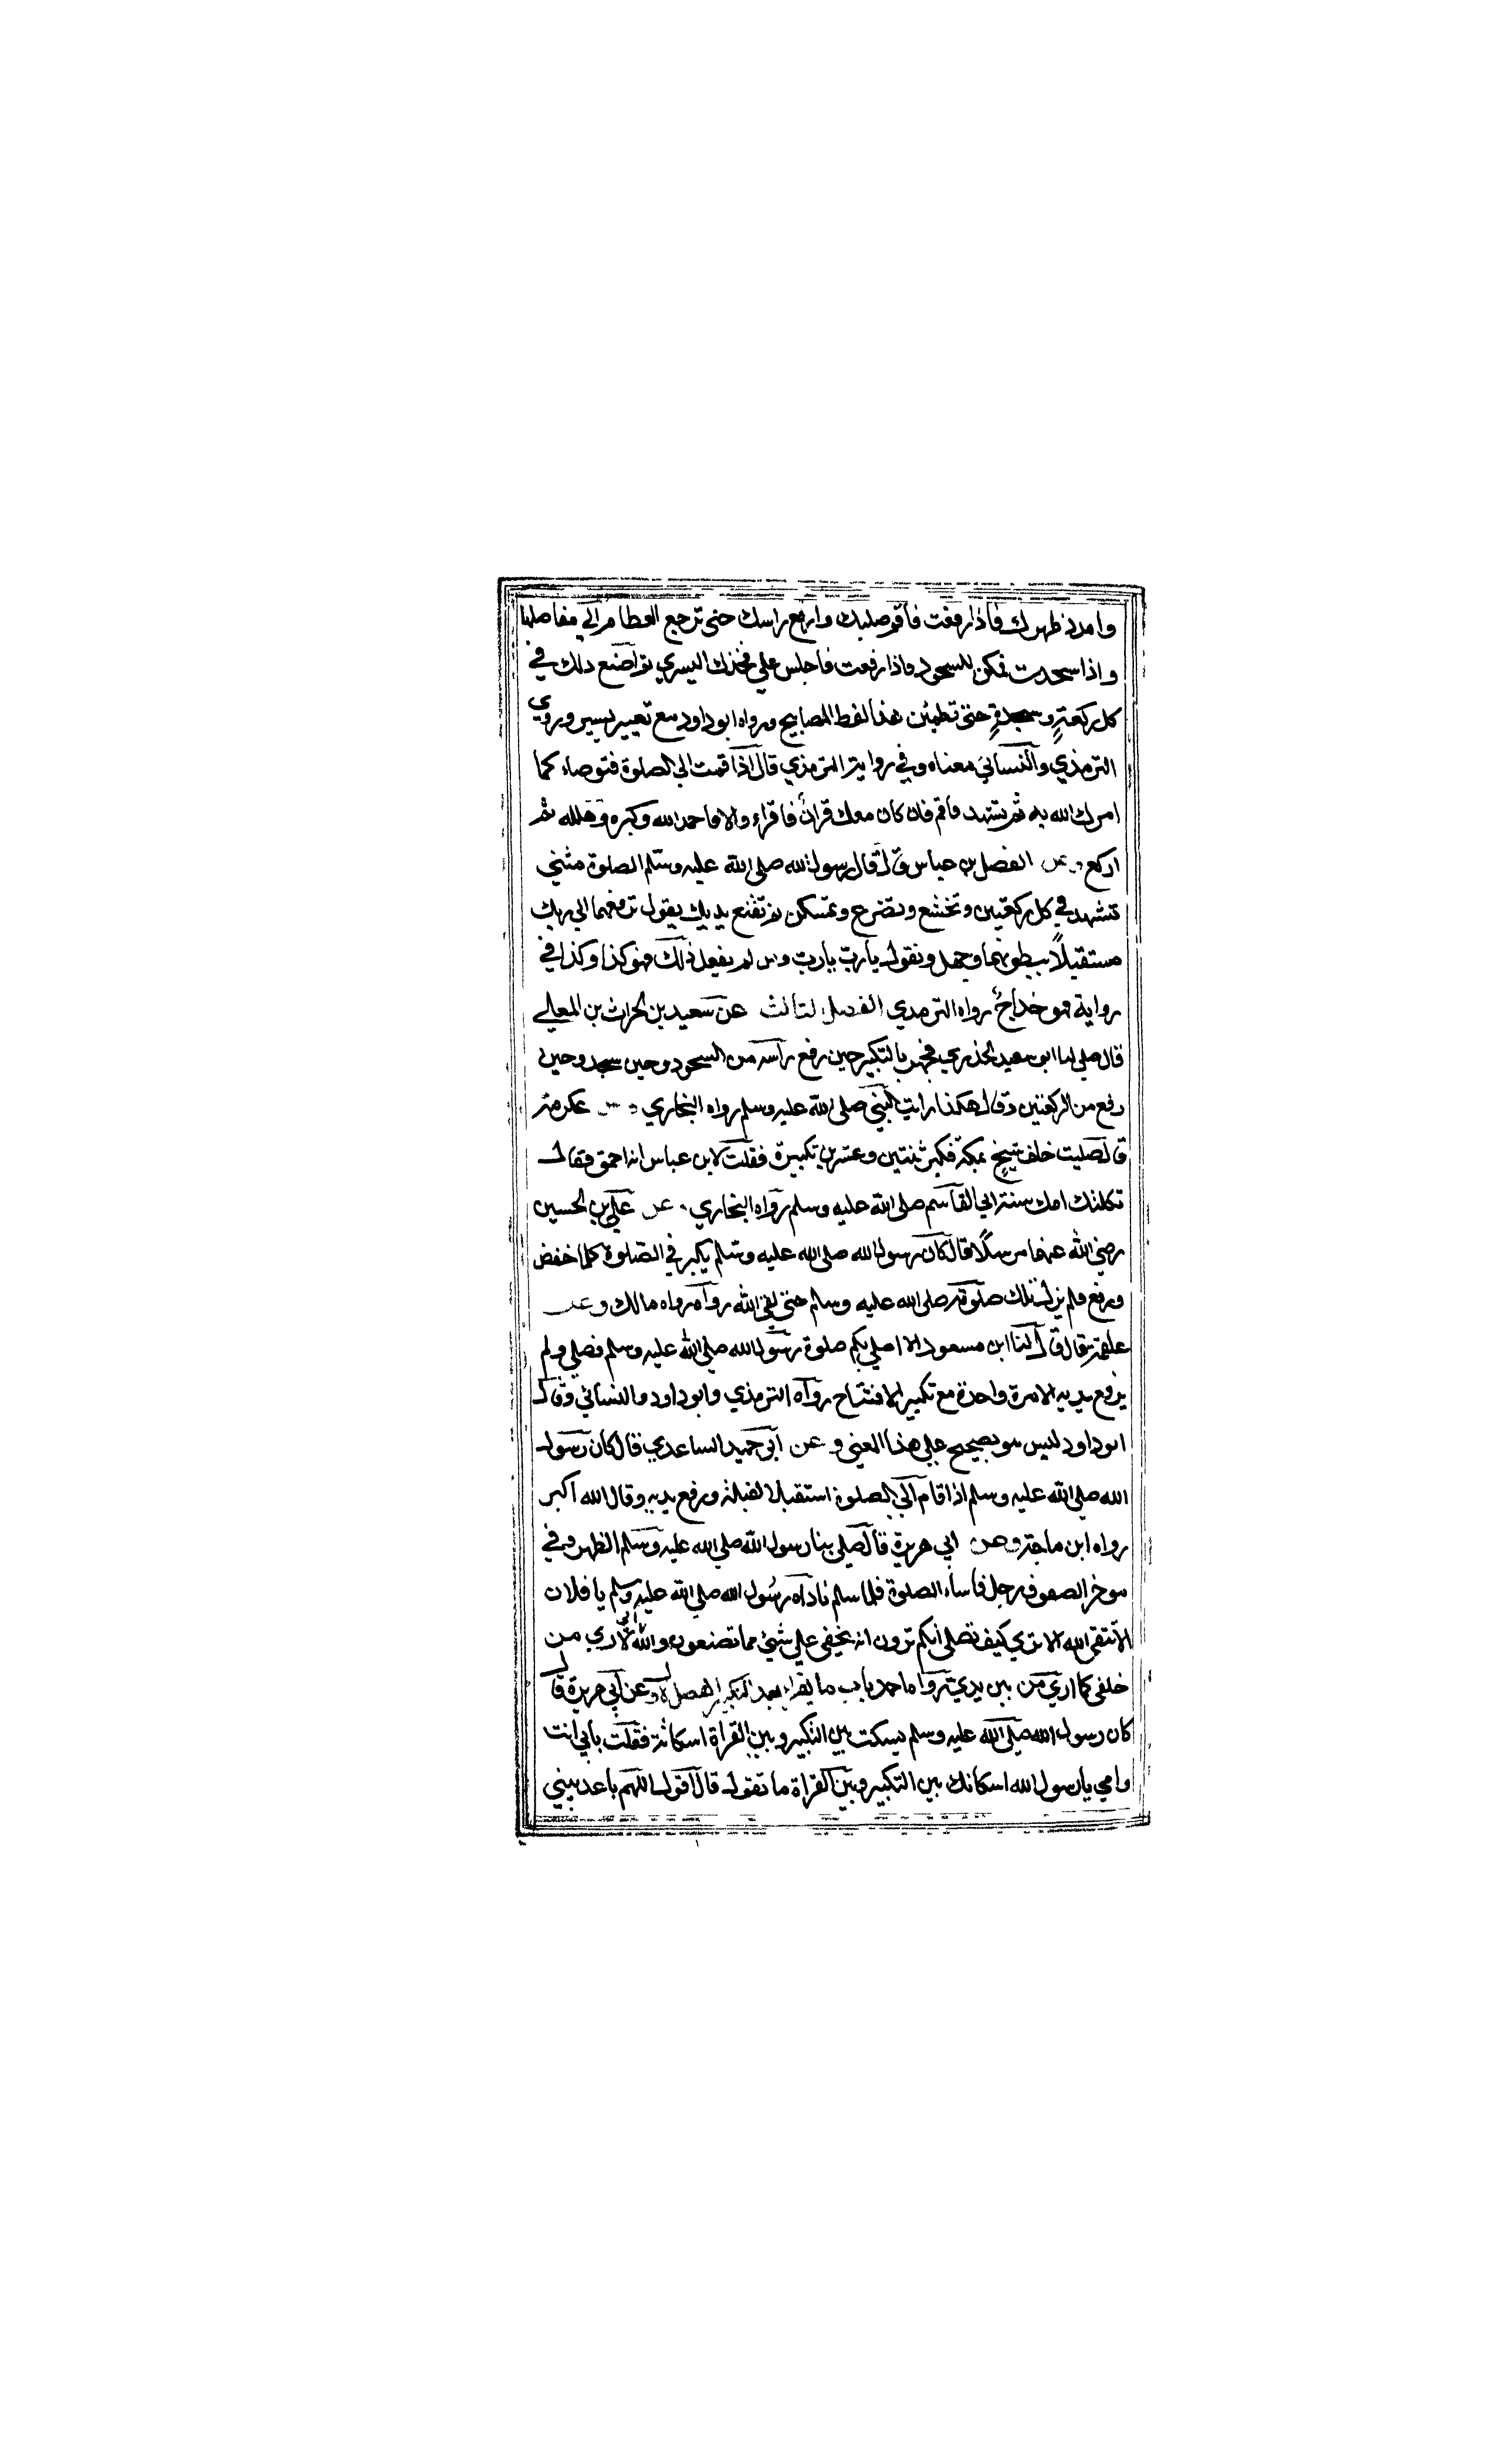 وامدد ظهرك فاذا رفعت فاقم صلبك وارفع راسك حتى ترجع العظام الي مفاصلها
واذا سجدت فمكن للسجود فاذا رفعت فاجلس علي فخذك اليسري ثم اصنع ذلك في
كل ركعة وسجدة حتى تطمئن هذا لفظ المصابيح ورواه ابوداود مع تغيير يسير وروي
الترمذي والنسائي معناه وفي رواية الترمذي قال اذا قمت الي الصلوة فتوضاء كما
امرك الله به ثم تشهد فاقم فان كان معك قران فاقراء والا فاحمد الله وكبره وهلله ثم
اركع وعن الفضل بن عباس قال قال رسول الله صلى الله عليه وسلم الصلوة مثني
تشهد في كل ركعتين وتخشع وتضرع وتمسكن ثم تقنع يديك يقول ترفعهما الي ربك
مستقبلا ببطونهما وجهك وتقول يا رب يا رب ومن لم يفعل ذلك فهو كذا وكذا في
رواية فهو خداج رواه الترمذي الفصل الثالث عن سعيد بن الحراث بن المعلي
قال صلي لنا ابو سعيد الخذري فجهر بالتكبير حين رفع راسه من السجود وحين سجد وحين
رفع من الركعتين وقال هكذا رايت النبي صلى الله عليه وسلم رواه البخاري وعن عكرمة
قال صليت خلف شيخ بمكة فكبر ثنتين وعشرين تكبيرة فقلت لابن عباس انه احمق فقال
ثكلتك امك سنة ابي القاسم صلى الله عليه وسلم رواه البخاري . عن علي بن الحسين
رضي الله عنهما مرسلا قال كان رسول الله صلى الله عليه وسلم يكبر في الصلوة كلما خفض
ورفع فلم يزل تلك صلوته صلى الله عليه وسلم حتى لقي الله رواه رواه مالك وعن
علقمة قال قال لنا ابن مسعود الا اصلي بكم صلوة رسول الله صلي الله عليه وسلم فصلي ولم
يرفع يديه الا مرة واحدة مع تكبير الافتتاح رواه الترمذي وابوداود والنسائي وقال
ابوداود ليس هو بصحيح علي هذا المعني وعن ابي حميد الساعدي قال كان رسول
الله صلي الله عليه وسلم اذا قام الي الصلوة استقبل القبلة ورفع يديه وقال الله اكبر
رواه ابن ماجة وعن ابي هريرة قال صلي بنا رسول الله صلي الله عليه وسلم الظهر وفي
موخر الصفوف رجل فاساء الصلوة فلما سلم ناداه رسول الله صلي الله عليه وسلم يا فلان
الا تتقي الله الا تري كيف تصلي انكم ترون انه يخفي علي شيئ مما تصنعون والله اني لاري من
خلفي كما اري من بين يدي رواه احمد باب ما يقراء بعد التكبير الفصل الاول عن ابي هريرة قال
كان رسول الله صلي الله عليه وسلم يسكت بين التكبير وبين القراة اسكاتة فقلت بابي انت
وامي يا رسول الله اسكاتك بين التكبير وبين القراة ما تقول قال اقول اللهم باعد بيني